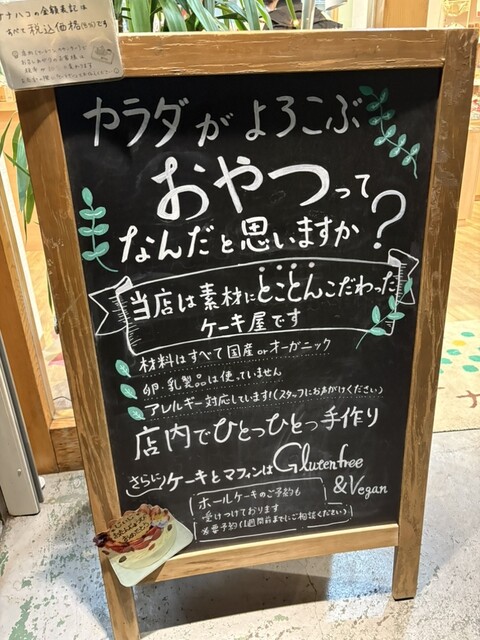 ナハコの金額表記は
すべて税込価格
カラダがよろこぶ
おやつって
なんだと思いますか?
当店は素材にとことんこだわった
ケーキ屋です
材料はすべて国産orオーガニック
卵・乳製品は使っていません
アレルギー対応しています!(スタッフにお声がけください)
店内でひとつひとつ手作り
さらに ケーキとマフィンはGluten free
&Vegan
ホールケーキのご予約も
受けつけております
※要予約(1週間前までにご相談ください)